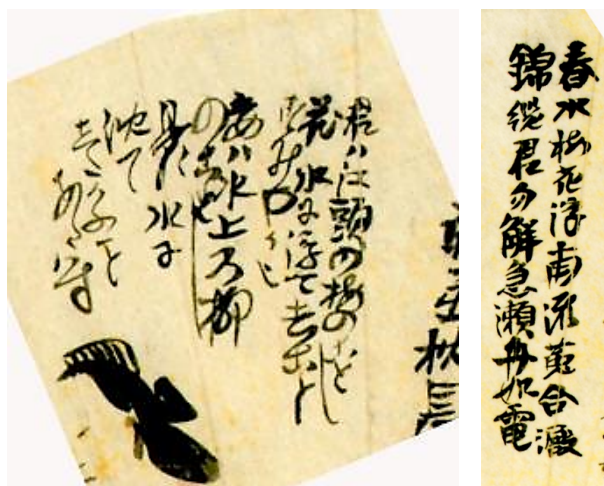 春水梅花浮南流菟合澱
錦纜君勿解急瀬舟如電
君ハ江頭の梅のことし
花水に浮て去こと
すみやか
妾ハ水上乃柳
のことし
影水に
沈て